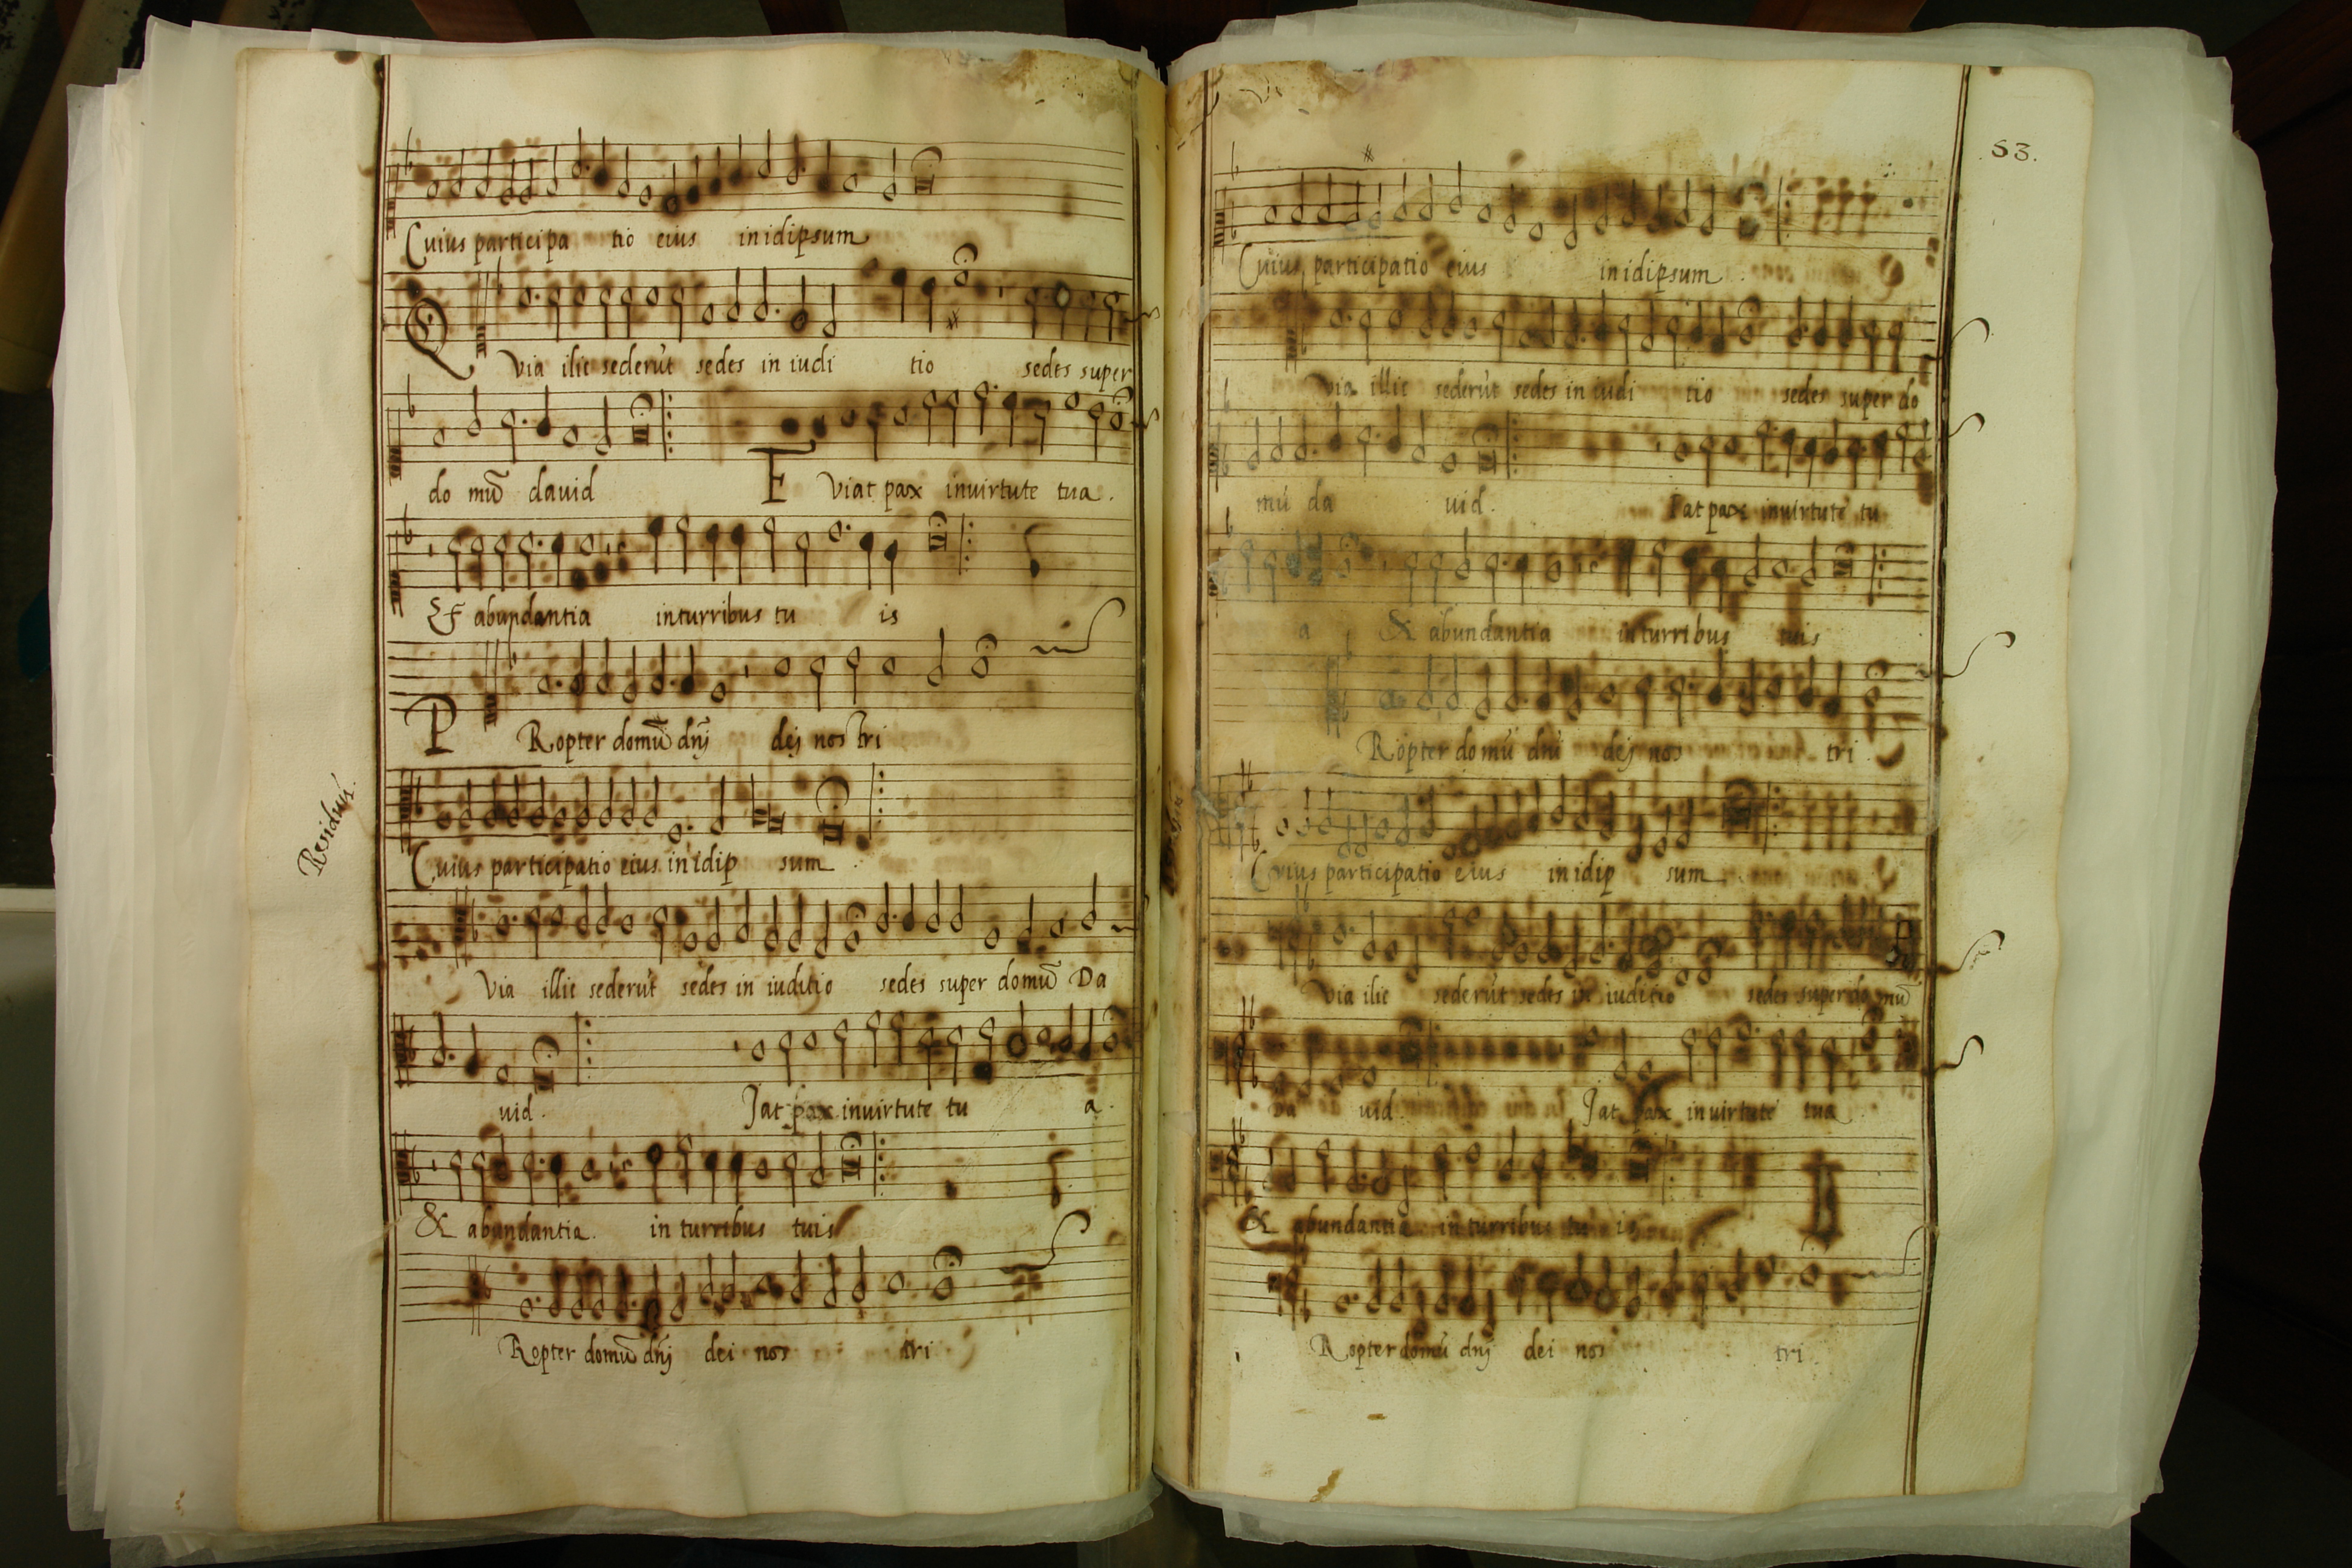 Cuius participa tio eius inidipsum
Q via ilic sederūt sedes in iudi tio sedes super
do mū dauid F viat pax inuirtute tua.
Et abundantia inturribus tu is
P Ropter domū dnj dej nostri
Residuū.
Cuius participatio eius in idip sum
Via illic sederūt sedes in iuditio sedes super domū Da
uid. Jat pax inuirtute tu a.
& abundantia. in turribus tuis
Ropter domū dnj dei nos tri
53.
Cuius participatio eius inidipsum
via illic sederūt sedes in iudi tio sedes super do
mū da uid. Iat pax inuirtute tu
a & abundantia inturribus tuis
Ropter domū dnī dej nos tri
Cuius participatio eius inidip sum
via ilic sederūt sedes in iuditio sedes super do mū
Da uid. Jat pax inuirtute tua
& abundantia in turribus tu is
Ropter domū dnj dei nos tri